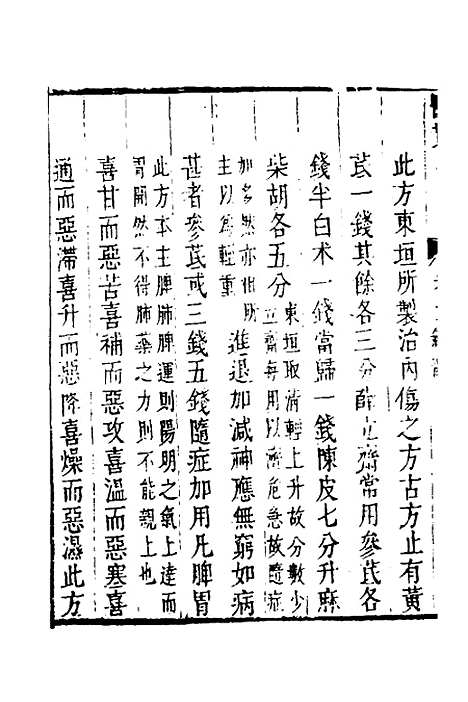 此方東垣所製治內傷之方古方止有黃
芪一錢其餘各三分薛立齋常用參芪各
錢半白术一錢當歸一錢陳皮七分升麻
柴胡各五分
東垣取淸輕上升故分數少
立齋每用以濟危急故隨症
加多然亦相所
主以爲輕重
進退加減神應無窮如病
甚者參芪或三錢五錢隨症加用凡脾胃
此方本主脾肺脾運則陽明之氣上達而
胃開然不得肺藥之力則不能親上也
喜甘而惡苦喜補而惡攻喜溫而惡塞喜
通而惡滯喜升而惡降喜燥而惡濕此方